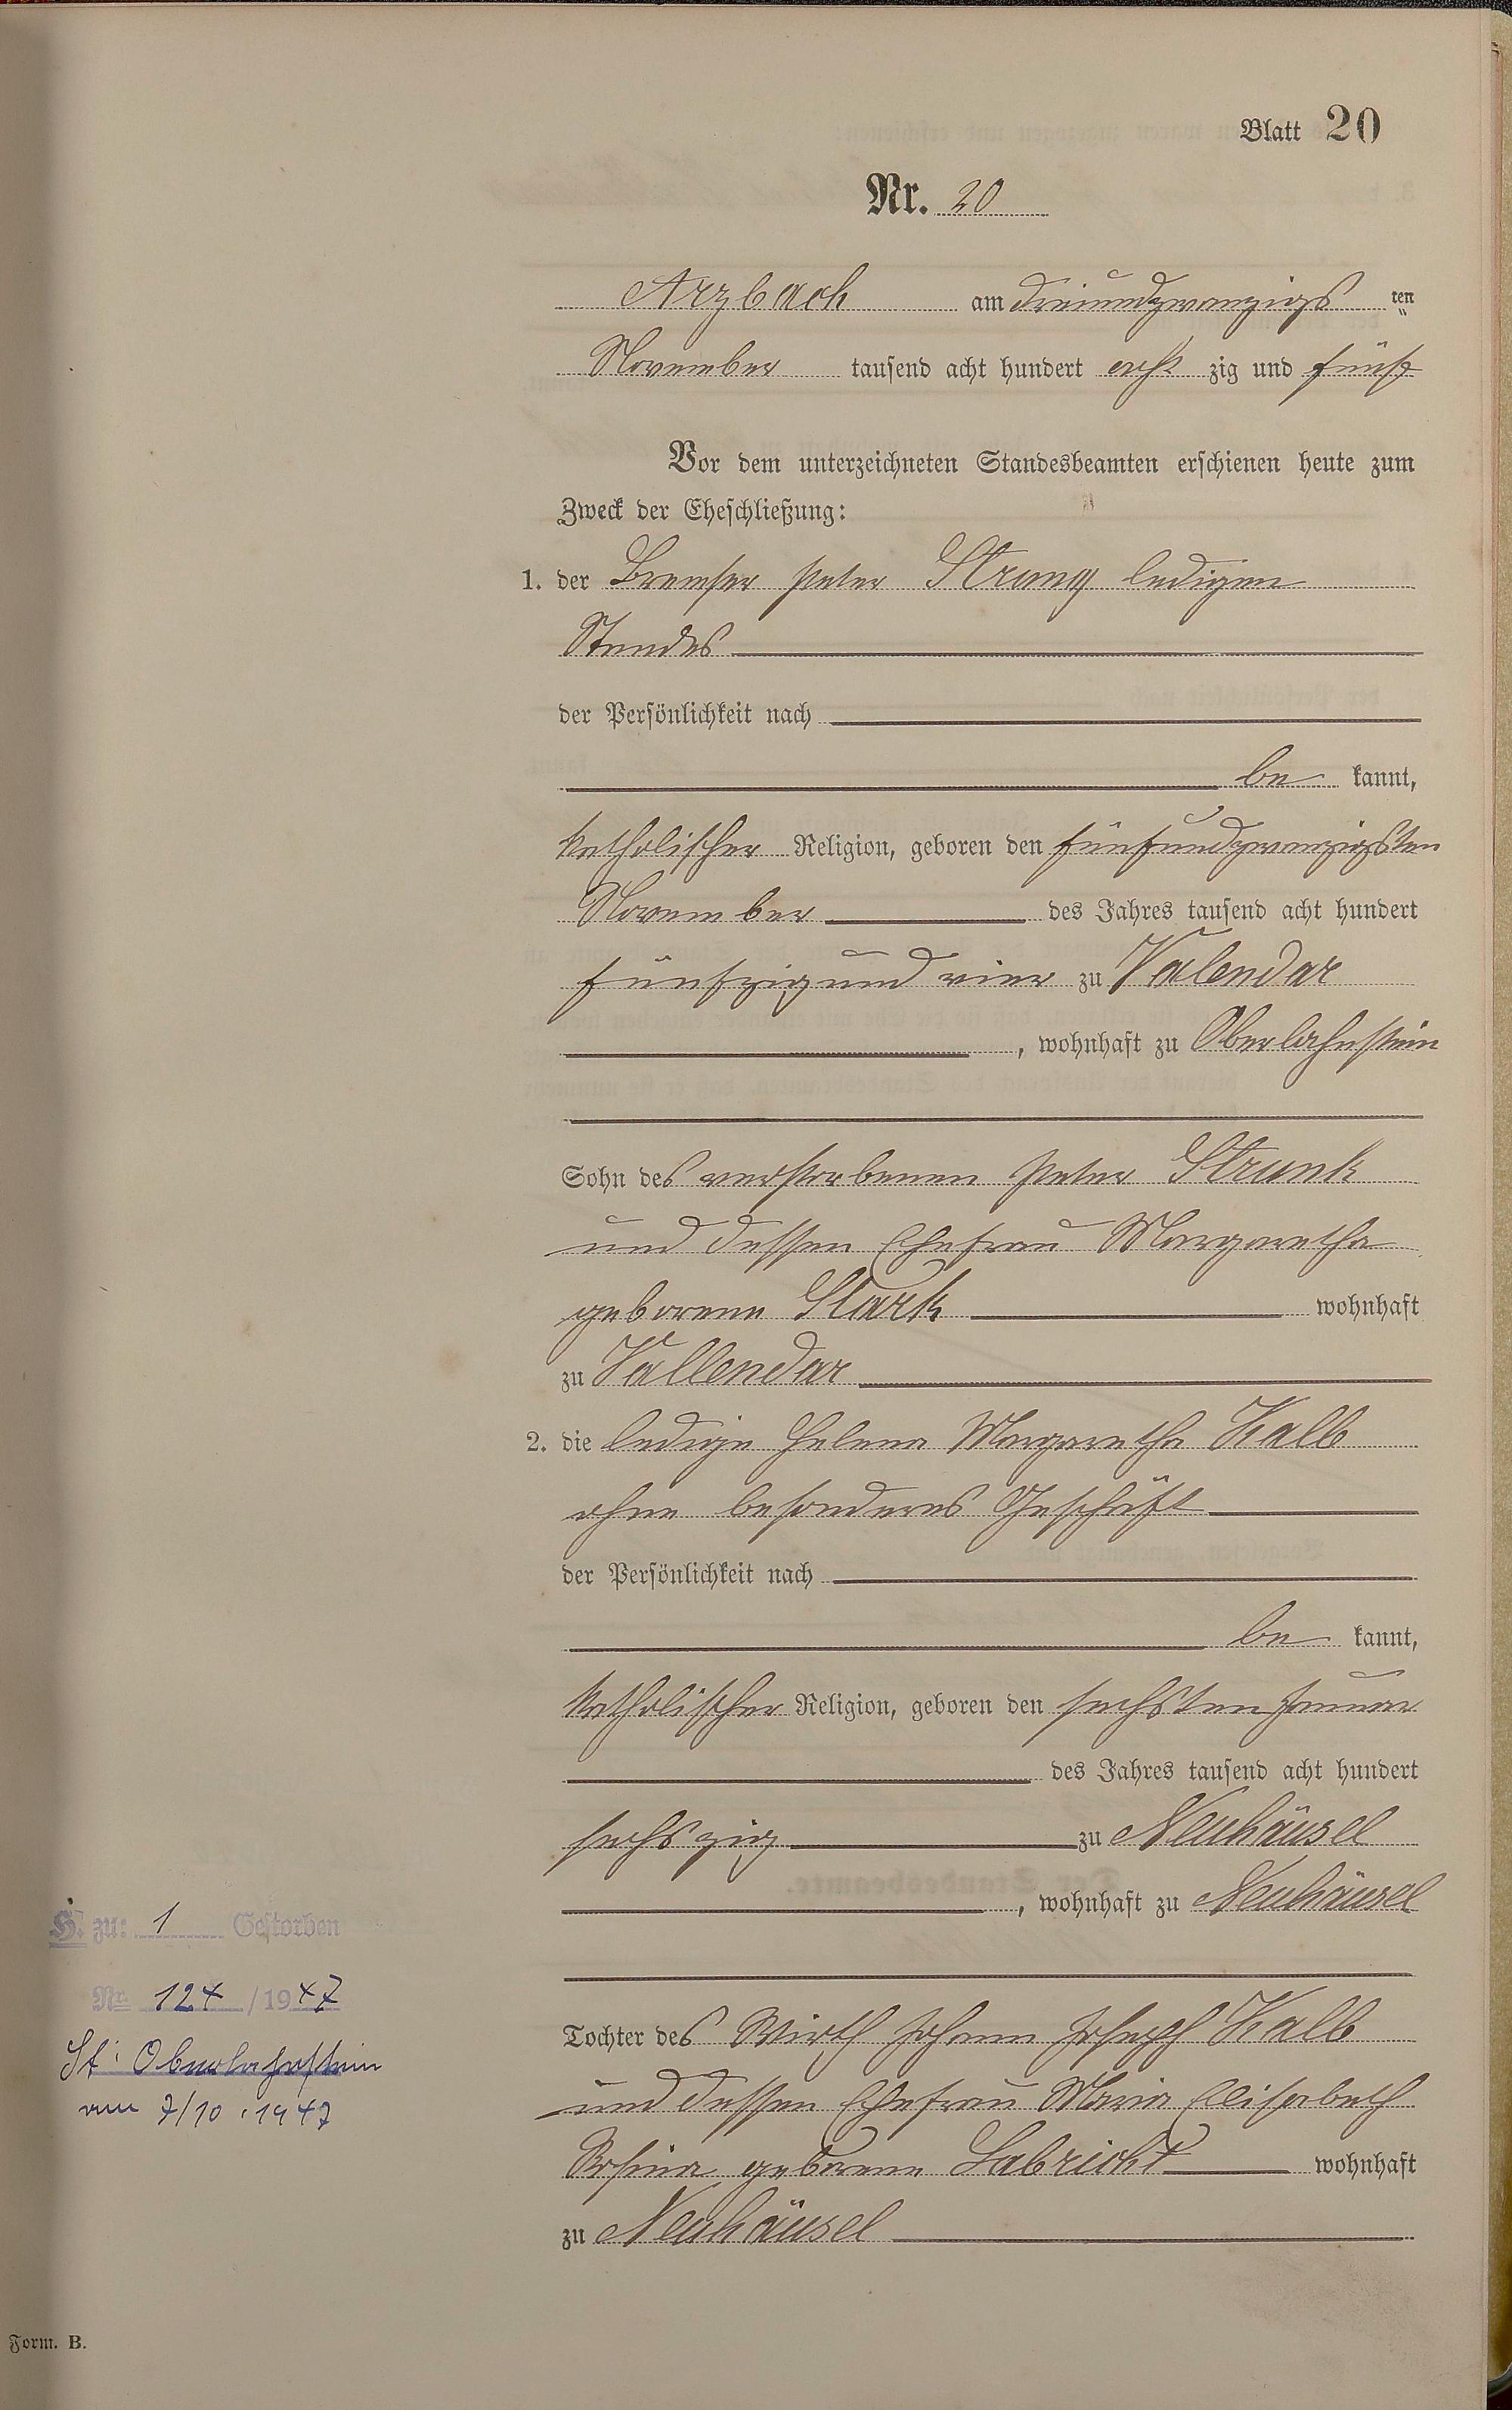 Blatt 20
Nr. 20
Arzbach am dreiundzwanzigs ten
November tausend acht hundert acht zig und fünf
Vor dem unterzeichneten Standesbeamten erschienen heute zum
Zweck der Eheschließung:
1. der Bremser Peter Strung ledigen
Standes
der Persönlichkeit nach
be kannt,
katholischer Religion, geboren den fünfundzwanzigsten
November des Jahres tausend acht hundert
fünfzig und vier zu Valendar
, wohnhaft zu Oberlahnstein
Sohn des verstorbenen Peter Strunk
und dessen Ehefrau Margaretha
geborene Stark wohnhaft
zu Vallendar
2. die ledige Helena Margaretha Kalb
ohne besonderes Geschäft
der Persönlichkeit nach
be kannt,
katholischer Religion, geboren den sechsten Januar
des Jahres tausend acht hundert
sechszig zu Neuhäusel
, wohnhaft zu Neuhäusel
H. zu: 1 Gestorben
Nr. 124 /1947
St. Oberlahnstein
am 7/10.1947
Tochter des Wirth Johann Joseph Kalb
und dessen Ehefrau Maria Elisabeth
Rosina geborene Labricht wohnhaft
zu Neuhäusel
Form. B.